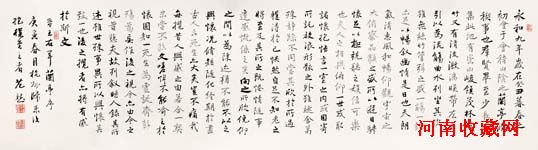 永和九年歲在癸丑暮春之
初會于會稽山陰之蘭亭脩
禊事也群賢畢至少長咸
集此地有崇山峻領茂林脩
竹又有清流激湍暎帶左右
引以為流觴曲水列坐其次
雖無絲竹管弦之盛一觴一詠
亦足以暢敘幽情是日也天朗
氣清惠風和暢仰觀宇宙之
大俯察品類之盛所以遊目騁
懷足以極視聽之娛信可樂
也夫人之相與俯仰一世或取
諸懷抱悟言一室之內或因寄
所託放浪形骸之外雖趣舍萬
殊靜躁不同當其欣於所遇
暫得於己快然自足不知老之
將至及其所之既惓情隨事
遷感慨係之矣向之所欣俛仰
之間以為陳迹猶不能不以之
興懷況脩短隨化終期於盡
古人云死生亦大矣豈不痛哉
每攬昔人興感之由若合一契
未嘗不臨文嗟悼不能喻之於
懷固知一死生為虛誕齊彭
殤為妄作後之視今亦由今之
視昔悲夫故列敘時人錄其所
述雖世殊事異所以興懷其
致一也後之攬者亦將有感
於斯文
晉王右軍蘭亭序
庚寅春月
河南收藏网